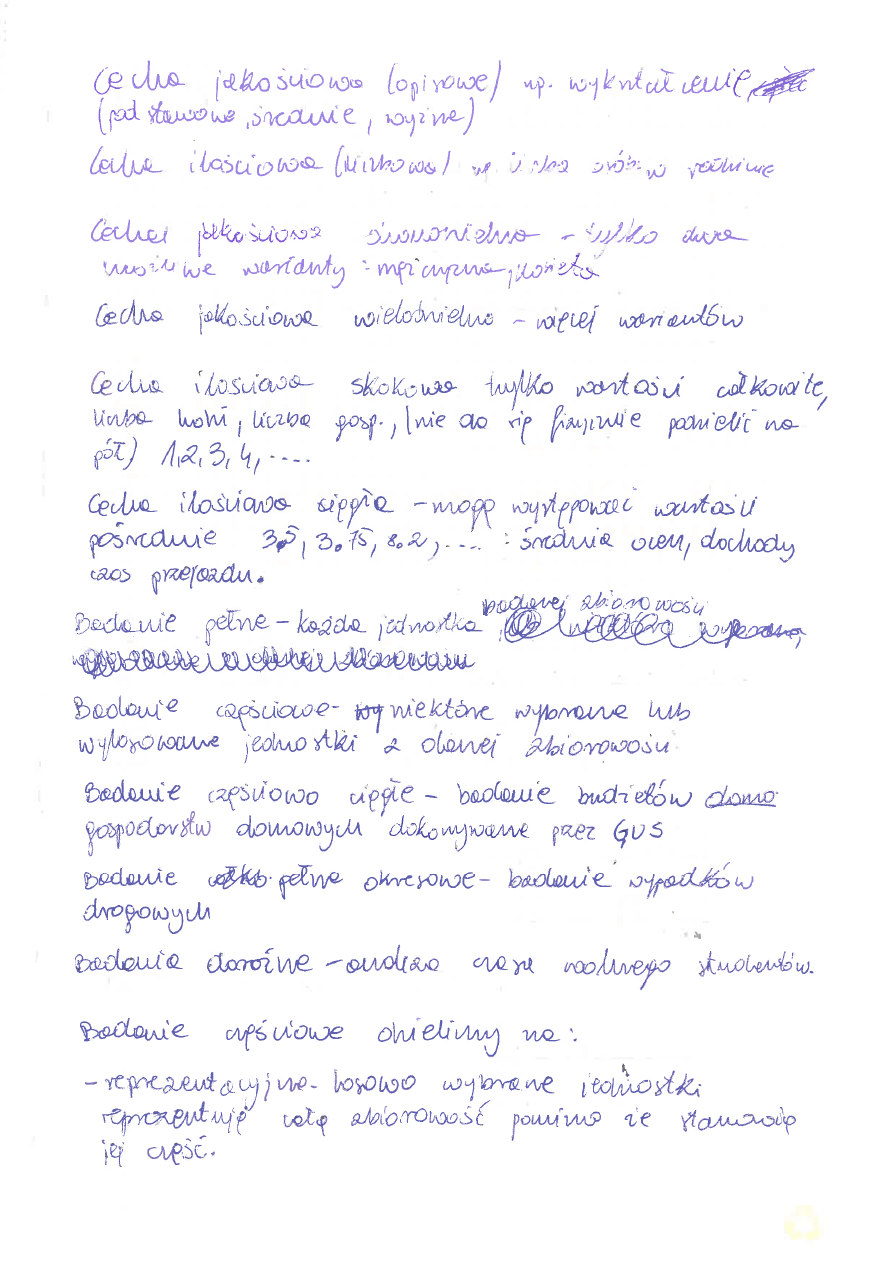 Cecha jakościowa (opisowe) np. wykształcenie,
(podstawowe, średnie, wyższe)
Cecha ilościowa (liczbowa) np. liczba osób w rodzinie
Cecha jakościowa dwudzielna - tylko dwa
możliwe warianty: mężczyzna, kobieta
Cecha jakościowa wielodzielna - więcej wariantów
Cecha ilościowa skokowa tylko wartości całkowite,
liczba koni, liczba gosp., (nie da się fizycznie podzielić na
pół) 1,2,3,4,....
Cecha ilościowa ciągła - mogą występować wartości
pośrednie 3.5, 3.75, 8.2,.... : średnia ocen, dochody
czas przejazdu.
Badanie pełne - każda jednostka badanej zbiorowości
Badanie częściowe - niektóre wybrane lub
wylosowane jednostki z danej zbiorowości
Badanie częściowo ciągłe - badanie budżetów
gospodarstw domowych dokonywane przez GUS
Badanie pełne okresowe - badanie wypadków
drogowych
Badania doraźne - analiza czasu wolnego studentów.
Badanie częściowe dzielimy na:
- reprezentacyjne - losowo wybrane jednostki
reprezentują całą zbiorowość pomimo że stanowią
jej część.